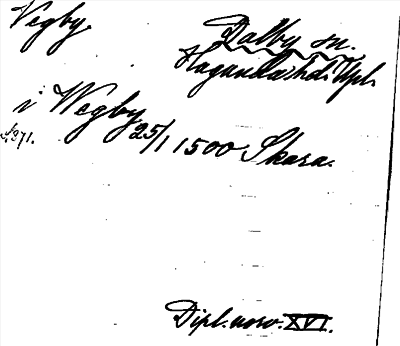 Vegby.
Dalby sn.
Hagunda hd. Upl.
i Wegby 25/1 1500 Skara.
Dipl. norv. XVI.